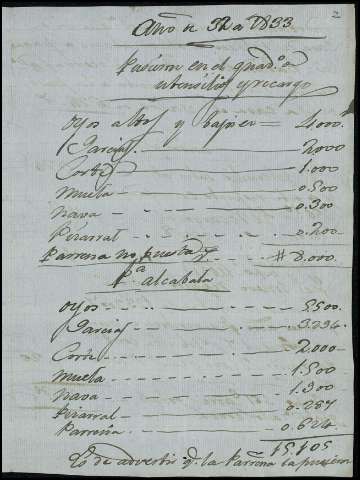 2
Año de 32 a 1833
Pusieron en el quad.º de
utensilios y recargo
Oyos altos y bajos 4000
Garcias 2000
Cortes 1.000
Mueta 0.500
Nava 0.300
Pizarral 0.200
Parrera no puesta # 8.000
P.ª alcabala
Oyos 5500
Garcias 3294
Cortes 2.000
Mueta 1.500
Nava 1.900
Pizarral 0.287
Parrera 0.624
15.105
Es de advertir q.e la Parrera la pusieron